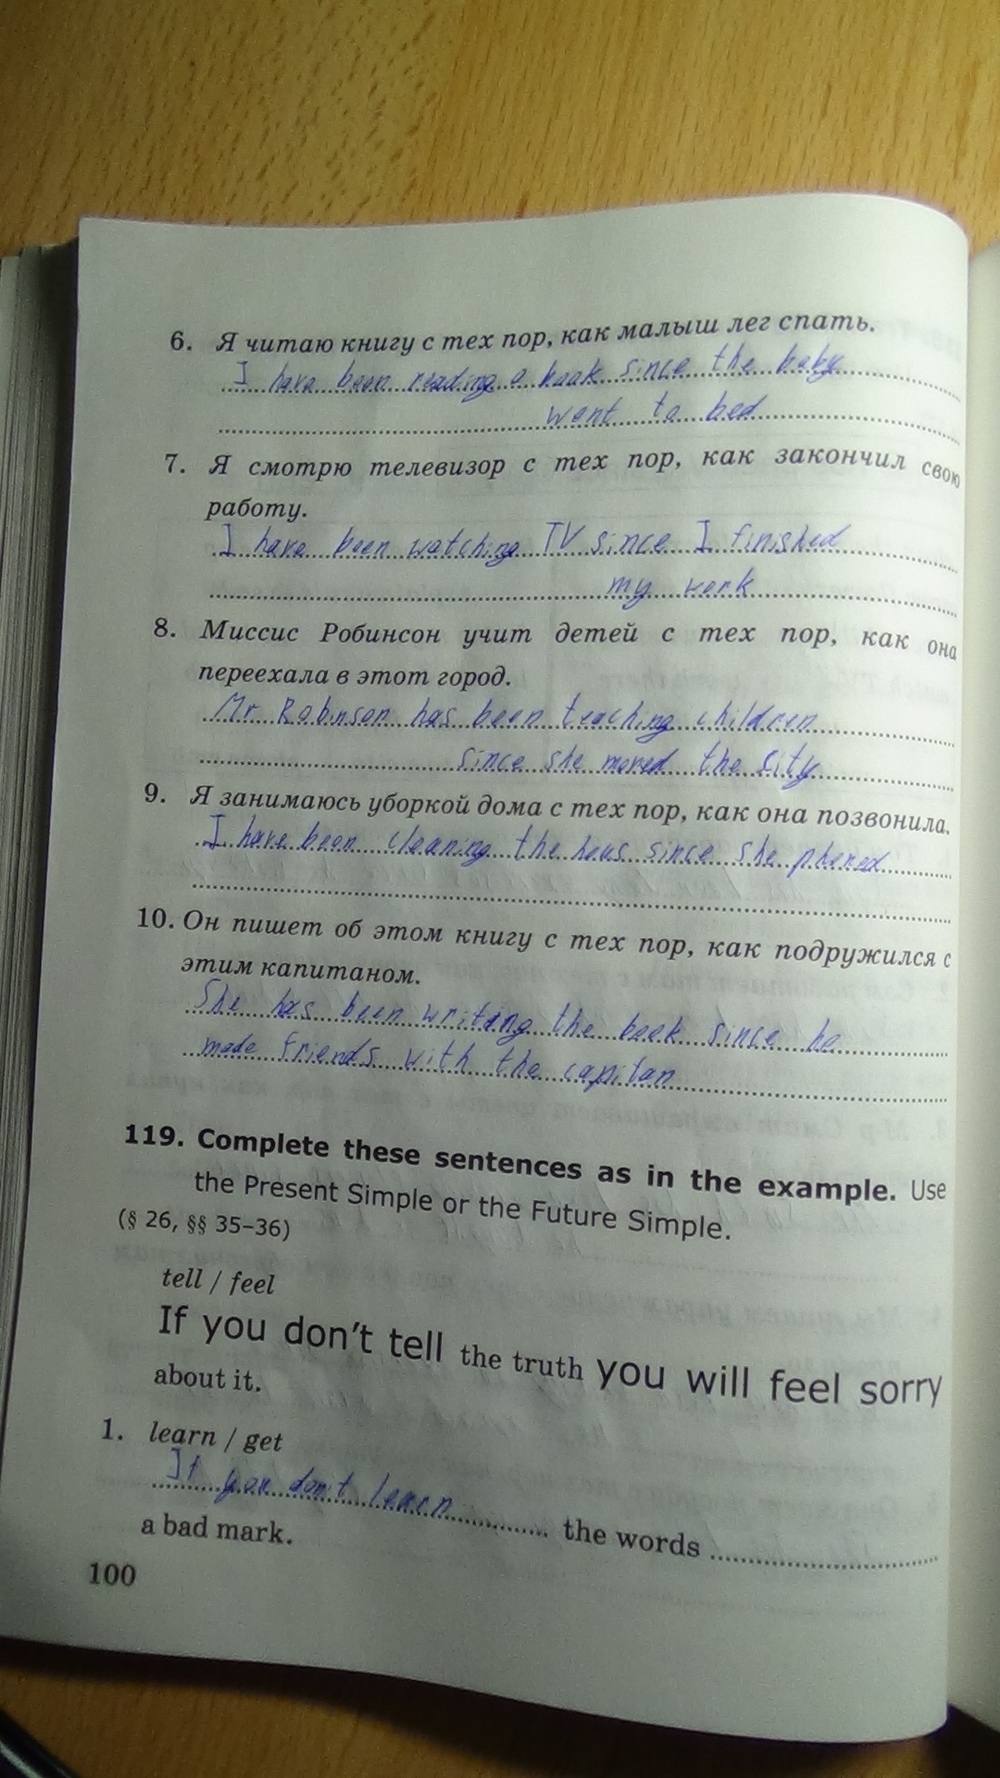 6. Я читаю книгу с тех пор, как малыш лег спать.
I have been reading a book since the baby
went to bed
7. Я смотрю телевизор с тех пор, как закончил свою
работу.
I have been watching TV since I finished
my work
8. Миссис Робинсон учит детей с тех пор, как она
переехала в этот город.
Mr Robinson has been teaching children
since she moved the city
9. Я занимаюсь уборкой дома с тех пор, как она позвонила.
I have been cleaning the hous since she phoned
10. Он пишет об этом книгу с тех пор, как подружился с
этим капитаном.
She has been writing the book since he
made friends with the capitan
119. Complete these sentences as in the example. Use
the Present Simple or the Future Simple.
(§ 26, §§ 35–36)
tell / feel
If you don't tell the truth you will feel sorry
about it.
1. learn / get
If you don't learn the words
a bad mark.
100